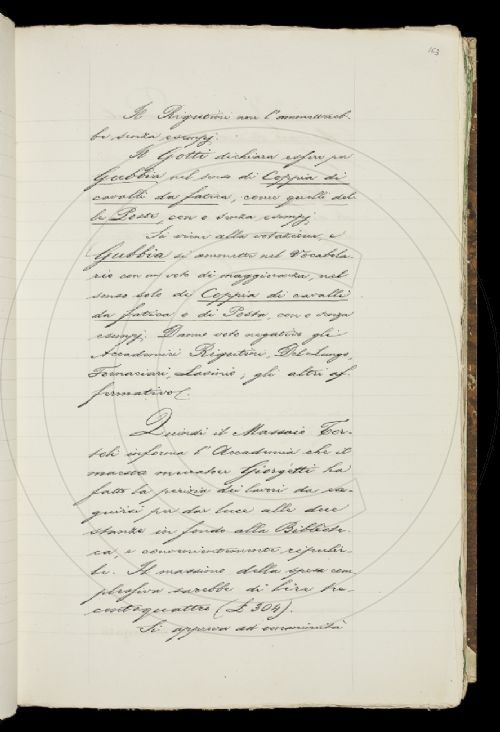 163
Il Rigutini non l'ammetterebbe
be senza esempj.
Il Gotti dichiara esser per
Gubbia nel senso di Coppia di
cavalli da fatica, come quelli del-
le Poste, con o senza esempj.
Si vieni alla votazione, e
Gubbia si ammette nel Vocabola-
rio con un voto di maggioranza, nel
senso solo di Coppia di cavalli
da fatica e di Posta, con o senza
esempj. Danno voto negativo gli
Accademici Rigutini, Del Lungo,
Fornaciari, ; gli altri af-
fermativo.
Quindi il Massaio Tor-
toli informa l'Accademia che il
maestro muratore Giorgetti ha
fatto la perizia dei lavori da ese-
guirsi per dar luce alle due
stanze in fondo alla Bibliote-
ca, e convenientemente ripulir-
le. Il massimo della spesa com
plessiva sarebbe di lire tre-
centoquattro (£ 304).
Si approva ad unanimità